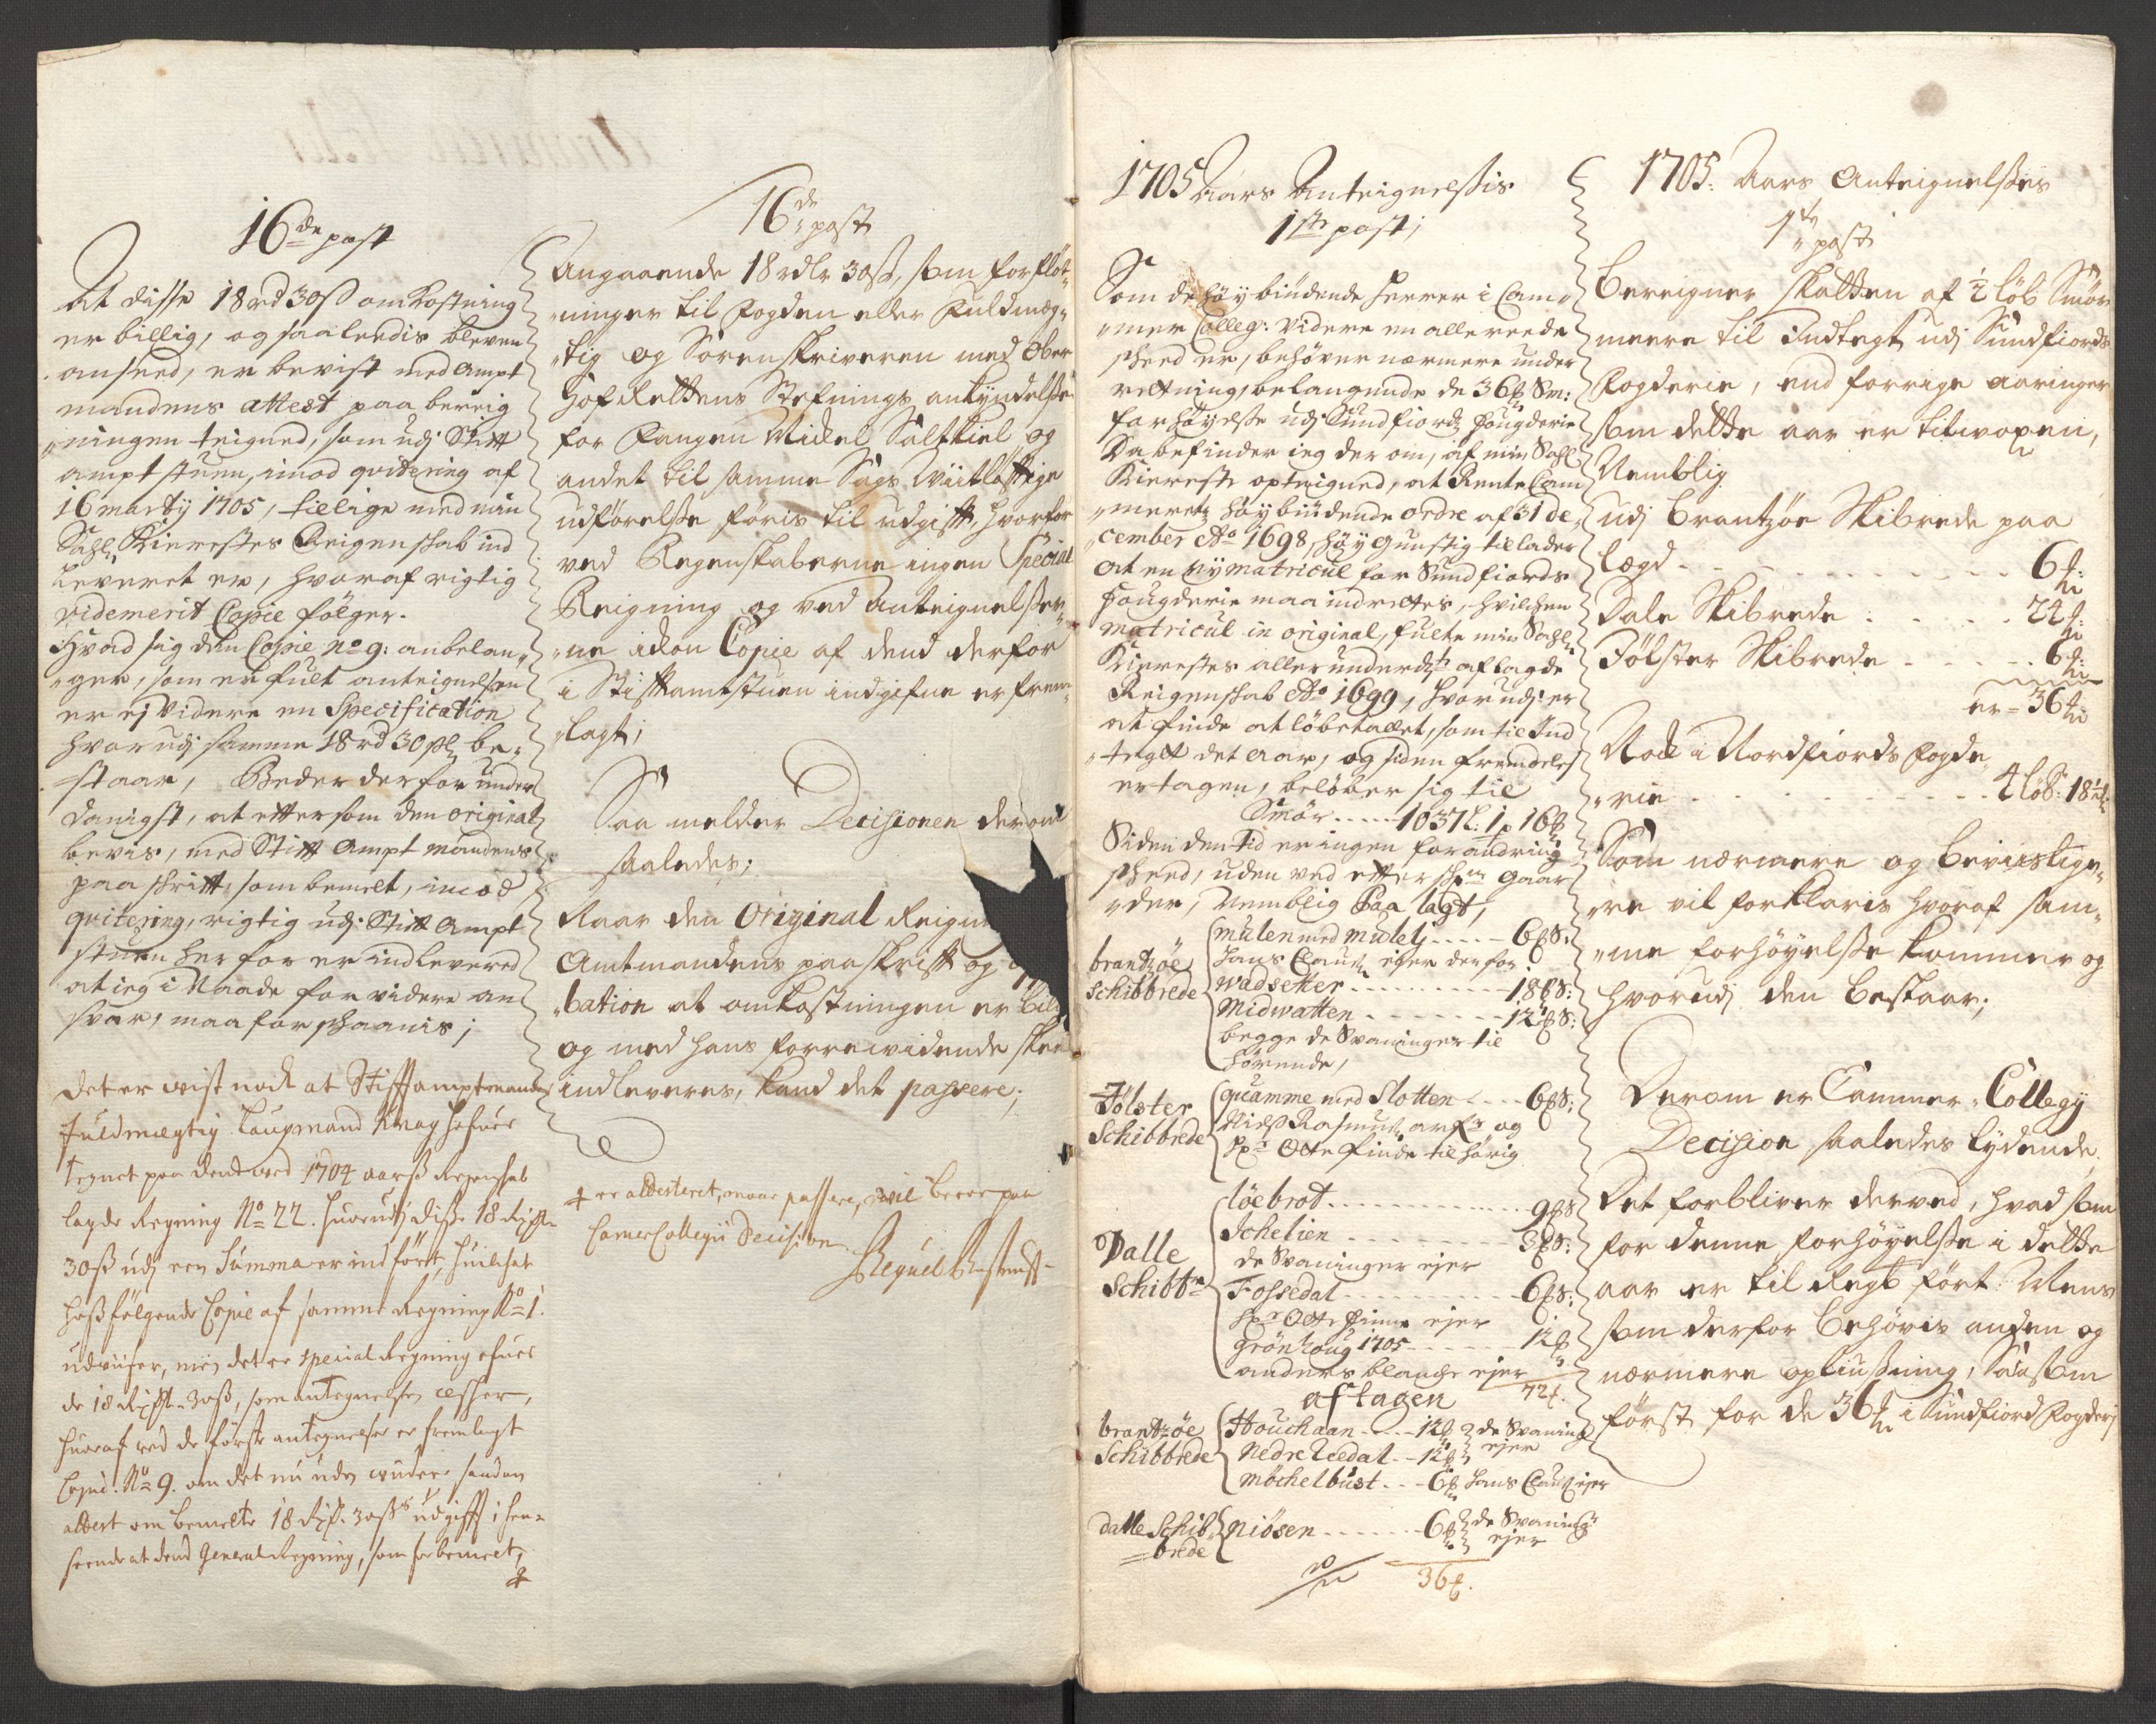 16de post
At disse 18rd 30ß omkostning
er billig, og saaledis bleven
anseed, er bevist med Ampt
mandens attest paa bereig
ningen teigned, som udj Stift
ampt stuen, imod qvitering af
16 marty 1705, tillige med min
Sahl. Kierestes Reigenskab ind
leveret er, hvoraf rigtig
videmerit Copie følger.
Hvad sig den Copie No 9: anbelan„
„ger, som er fult anteignelsen
er ej videre en Specification
hvorudj samme 18rd 30ß be„
staar, Beder derfor under
danigst, at eftersom den original
bevis, med Stift Ampt mandens
paaskrift, som bemelt, imod
qvitering, rigtig udj Stift Ampt
stuen her for er indlevered
at ieg i Naade for videre an
svar, maa forskaanis;
Det er vist nock at Stiftamptmands
fuldmegtig Laugmand Krag hafuer
tegnet paa dend ved 1704 aarß Regenskab
lagde Regning No 22. huorudj disse 18 Rdr
30ß udj een Summa er indført, huilchet
hoßfølgende Copie af samme Regning No 1.
udviiser, men det er special Regning ofuer
de 18 Rdr 30ß, som antegnelsen æsker,
huoraf ved de første antegnelser er fremlagt
Copie No 9. om det nu uden widere saadan
attest om bemelte 18 Rdr 30ß udgift i hen„
seende at dend General Regning, som forbemelt,
16de post
Angaaende 18 rdlr 30ß, som for fløt„
„ninger til Fogden eller Fuldmeg„
„tig og Sorenskriveren med Ober
Hof Rettens Stefnings ankyndelse
for Fangen Mickel Salttiel og
andet til samme Sags Wiitløftige
udførelse føris til udgift, hvorfor
ved Regenskaberne ingen Special
Reigning og ved Anteignelser„
„ne ickon Copie af dend derfor
i Stiftamtstuen indgifne er frem„
„lagt;
Saa melder Decisionen derom
saaledes;
Naar den Original Reigni
Amtmandens paaskrift og
„bation at omkostningen er bil
og med hans forrewidende skee
indleveres, kand det passere;
er attesteret, maae passere, wil beroe paa
Camer Collegii Decision
1705 Aars Anteignelsis
1ste post;
Som de høybiudende Herrer i Cam„
„mer Colleg: videre en allereede
skeed er, behøver nærmere under
rettning, belangende de 36 Sm:
forhøyelse udj Sundfiords Fougderie
Da befinder ieg der om, af min Sahl
Kiereste opteigned, at Rente Cam
„merets høybiudende ordre af 31 de„
„cember Ao 1698, høygunstig tillader
at en ny matricul for Sundfiords
Fougderie maa indrettes, hvilchen
matricul in original, fulte min Sahl
Kierestes allerunderd: aflagde
Reigenskab Ao 1699, hvorudj er
at finde at løbetallet, som til Ind
„tegt det Aar, og siden fremdeles
er tagen, beløber sig til
Smør ..... 1037 L: 1 p 16
Siden den tid er ingen forandring
skeed, uden ved efterschr: gaar
„der, Nemblig Paa lagt,
brandzøe
schibbrede
Mulen med mulelj ..... 6
Hans Claus: ejer derfor
wadsetter ......... 18
Midwatten ....... 12
begge de Svaninger til
hørende,
Jølster
Schibbrede
quamme med Slotten .... 6
Niels Rasmus: arf: og
Hr Otte Finde tilhørig
Dalle
Schibbr
løebrot .......... 9
Schelien ........ 3
de Svaninger ejer
Fossedal ......... 6
Hr Otte Finne ejer
Grønhoug 1705 ...... 12
anders blanche ejer
72
aftagen
brandzøe
Schibbrede
Houchaan .... 12 de Svaning
Nedre Leedal .. 12 ejer
Møchelbust ... 6 Hans Claus ejer
dalle Schib
brede
Niøsen ...... 6 de Svaning
ejer
36
1705: Aars Anteignelses
1te post
Bereigner Skatten af ½ løb Smør
meere til Indtegt udj Sundfiords
Fogderie, end forrige aaringer
som dette aar er tilvoxen,
Nemblig
udj Brantzøe Skibrede paa
lagd ........... 6
Dale Skibrede ...... 24
Jølster Skibrede ..... 6
er = 36
Nock i Nordfiords Fogde„
„rie ........... 4 løb: 18
Som nærmere og bevislige„
„re vil forklaris hvoraf sam„
„me forhøyelse kommer og
hvorudj den bestaar;
Derom er Cammer Collegij
Decision saaledes lydende.
Det forbliver derved, hvad som
for denne forhøyelse i dette
aar er til Regt ført. Mens
som derfor behøvis anden og
nærmere oplysning, Saasom
først for de 36 i Sundfiord Fogderj